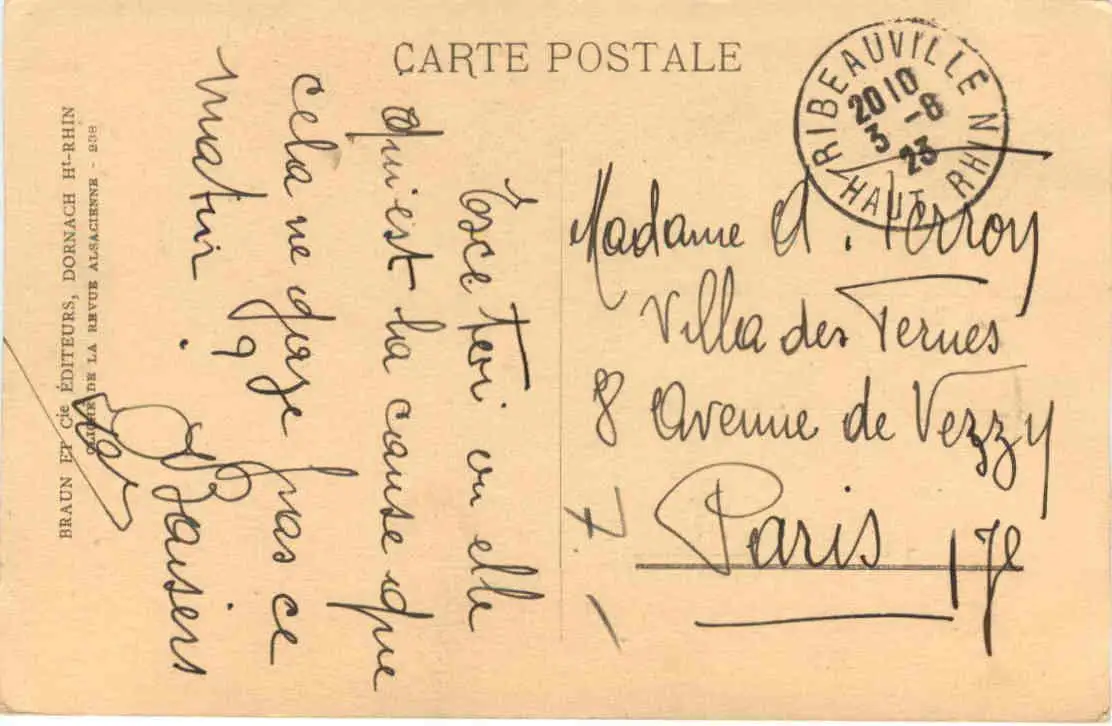 CARTE POSTALE
RIBEAUVILLE
HAUT RHIN
20 10
3 -8
23
Est ce toi ou elle
qui est la cause que
cela ne gaze pas ce
matin ??
Baisers
Madame A. Terroy
Villa des Ternes
8 Avenue de Vezzy
Paris 17e
BRAUN ET Cie ÉDITEURS, DORNACH Ht-RHIN
CLICHÉ DE LA REVUE ALSACIENNE - 238